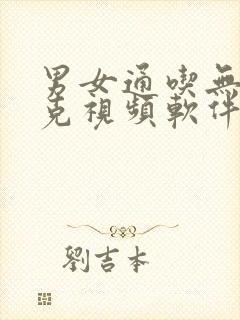 男女通喫無
克視頻軟件
劉吉本